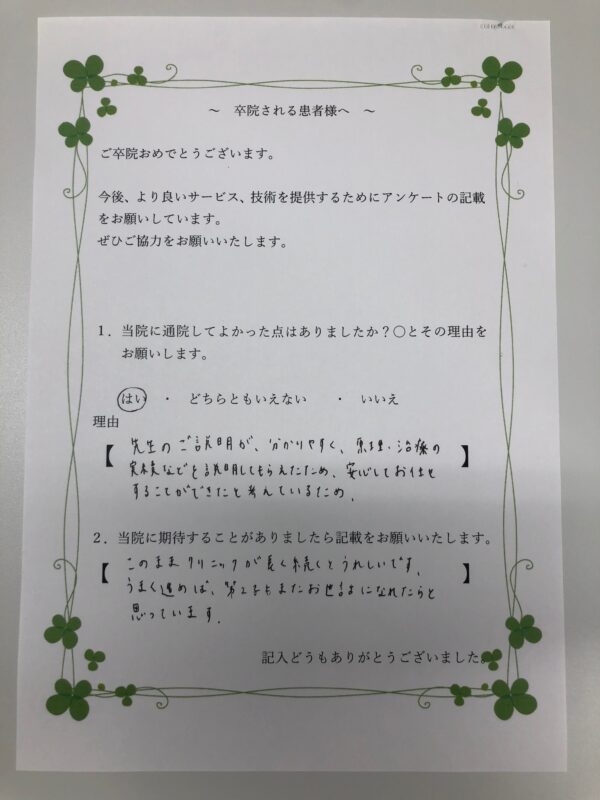 ～ 卒院される患者様へ ～
ご卒院おめでとうございます。
今後、より良いサービス、技術を提供するためにアンケートの記載
をお願いしています。
ぜひご協力をお願いいたします。
1．当院に通院してよかった点はありましたか？○とその理由を
お願いします。
はい ・ どちらともいえない ・ いいえ
理由
【 先生のご説明が、分かりやすく、原理・治療の
実績などを説明してもらえたため、安心してお任せ
することができたと考えているため。 】
2．当院に期待することがありましたら記載をお願いいたします。
【 このままクリニックが長く続くとうれしいです。
うまく進めば、第2子もまたお世話になれたらと
思っています。 】
記入どうもありがとうございました。